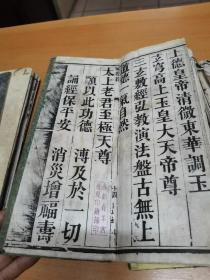 上德皇帝清微東華調玉
玄穹高上玉皇大天帝尊
玄敷經弘教演法盤古無上
一氣自然
太上老君至極天尊
願以此功德 溥及於一切
誦經保平安 消災增福壽